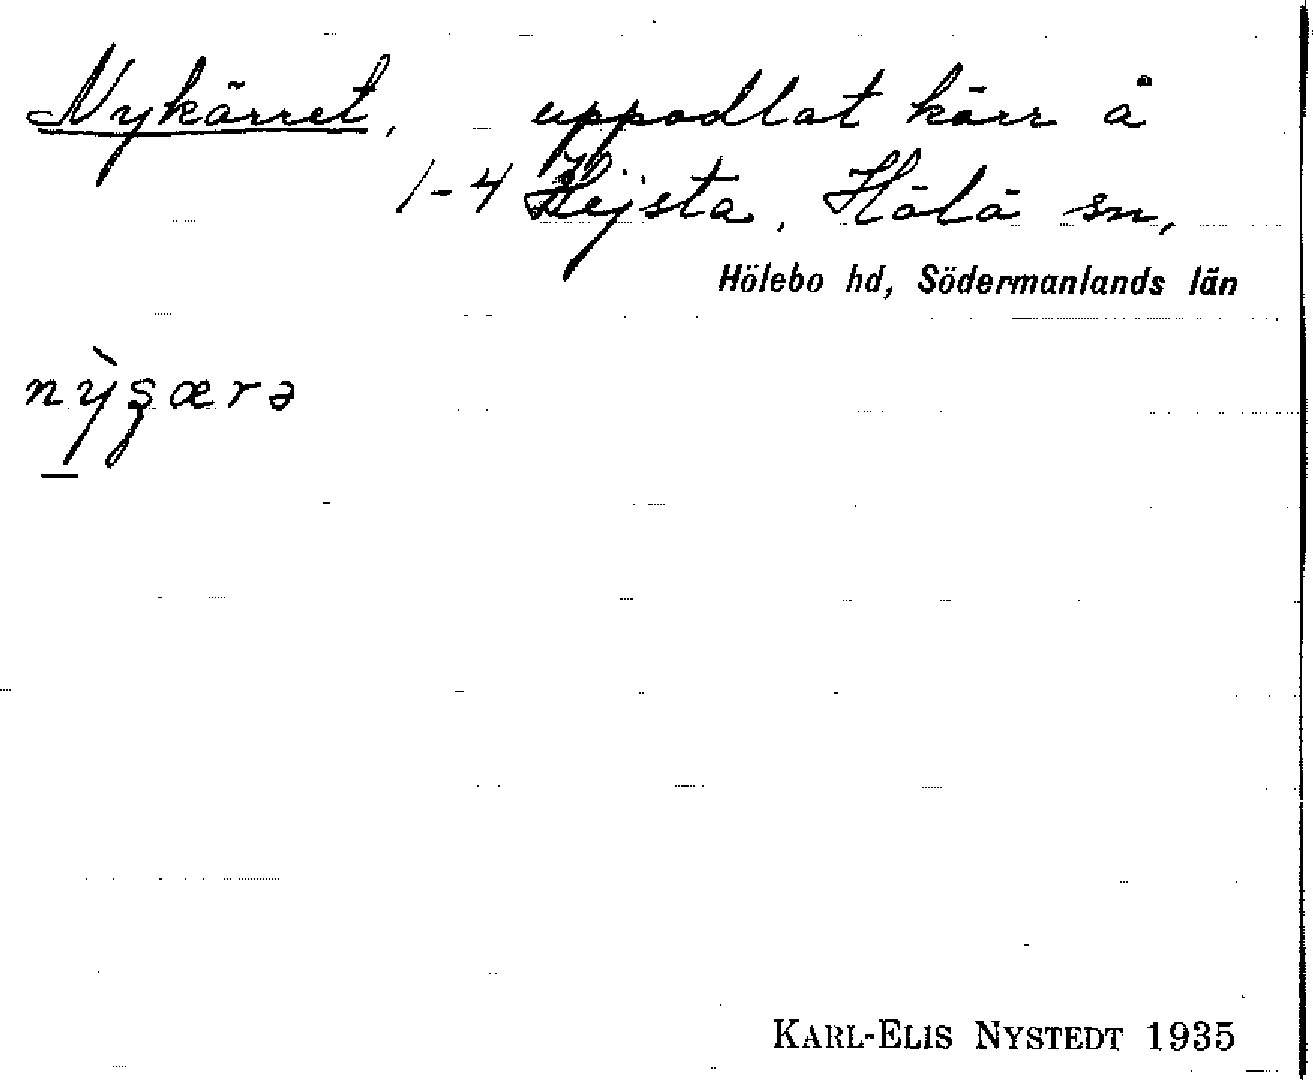 Nykärret, uppodlat kärr å
1-4 Hejsta, Hölö sn,
Hölebo hd, Södermanlands län
KARL-ELIS NYSTEDT 1935